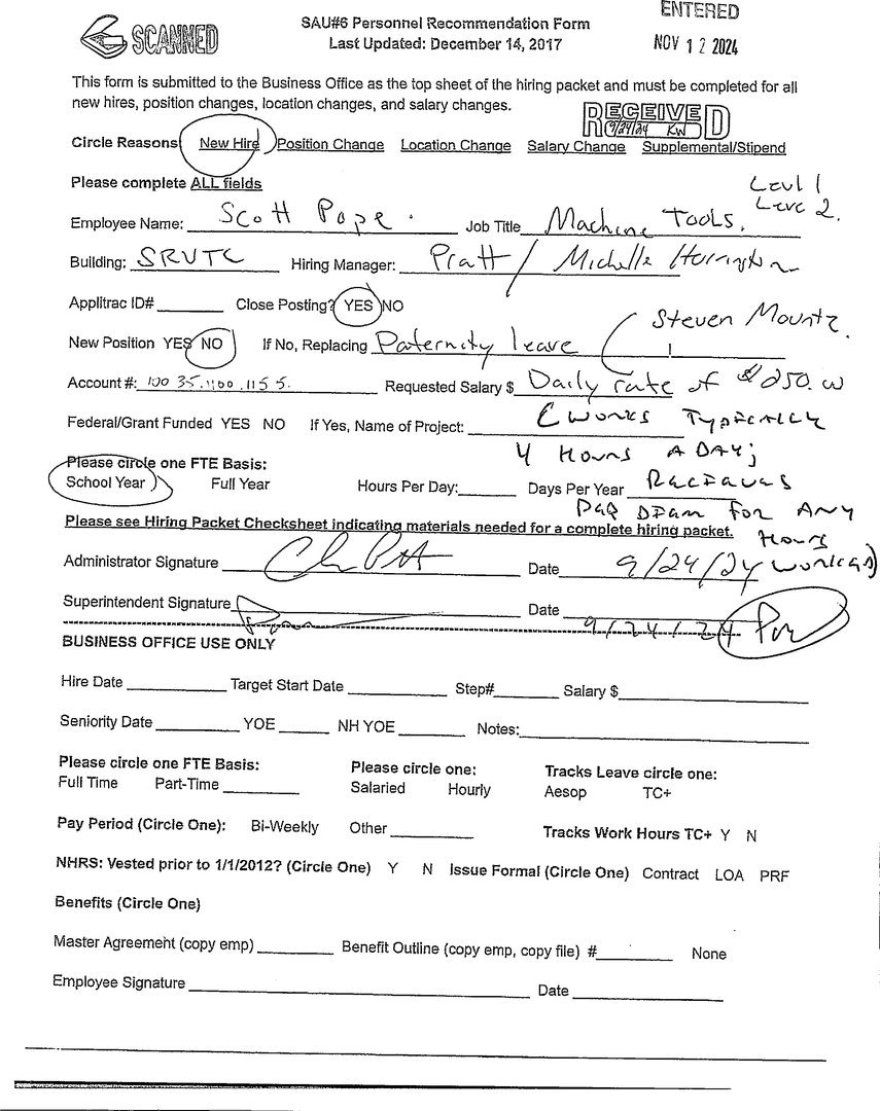 SCANNED
SAU#6 Personnel Recommendation Form
Last Updated: December 14, 2017
ENTERED
NOV 12 2024
This form is submitted to the Business Office as the top sheet of the hiring packet and must be completed for all
new hires, position changes, location changes, and salary changes.
RECEIVED
9/24/24 KW
Circle Reasons: New Hire Position Change Location Change Salary Change Supplemental/Stipend
Please complete ALL fields
Level 1
Level 2.
Employee Name: Scott Pope. Job Title Machine Tools.
Building: SRVTC Hiring Manager: Pratt / Michelle Harrington
Applitrac ID# Close Posting? YES NO
Steven Mountz.
New Position YES NO If No, Replacing Paternity leave
Account #: 100 35.1100.1155. Requested Salary $ Daily rate of $250.00
Federal/Grant Funded YES NO If Yes, Name of Project:
(works Typically
4 Hours A DAY;
Please circle one FTE Basis:
School Year Full Year Hours Per Day: Days Per Year
Receives
Per Diem for Any
Hours
worked)
Please see Hiring Packet Checksheet indicating materials needed for a complete hiring packet.
Administrator Signature Date 9/24/24
Superintendent Signature Date 9/24/24
BUSINESS OFFICE USE ONLY
Hire Date Target Start Date Step# Salary $
Seniority Date YOE NH YOE Notes:
Please circle one FTE Basis: Please circle one: Tracks Leave circle one:
Full Time Part-Time Salaried Hourly Aesop TC+
Pay Period (Circle One): Bi-Weekly Other Tracks Work Hours TC+ Y N
NHRS: Vested prior to 1/1/2012? (Circle One) Y N Issue Formal (Circle One) Contract LOA PRF
Benefits (Circle One)
Master Agreement (copy emp) Benefit Outline (copy emp, copy file) # None
Employee Signature Date